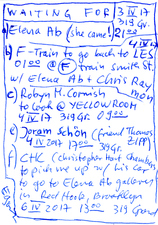 WAITING FOR 3 IV 17
319 Gr.
a) Elena Ab (she came!) 21 00
4 IV 17
b) F-Train to go back to LES
01 00 @ F train Smith St.
w/ Elena Ab + Chris Ray
c) Robyn M. Cornish mon
to cook @ YELLOW ROOM
4 IV 17 319 Gr. 09 00
e) Joram Schön (friend Thomas
4 IV 2017 17 00 39 Gr. ZIPP)
f) CHC (Christopher Hart Chambers)
to pick me up w/ his car
to go to Elena Ab gallery
in Red Hook, Brooklyn
6 IV 2017 13 00 319 Grand